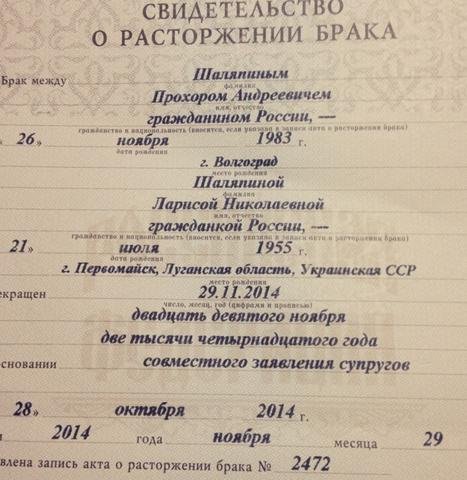 СВИДЕТЕЛЬСТВО
О РАСТОРЖЕНИИ БРАКА
Брак между Шаляпиным
фамилия
Прохором Андреевичем
имя, отчество
гражданином России, —
гражданство и национальность (вносится, если указано в записи акта о расторжении брака)
26» ноября 1983 г.
дата рождения
г. Волгоград
место рождения
Шаляпиной
фамилия
Ларисой Николаевной
имя, отчество
гражданкой России, —
гражданство и национальность (вносится, если указано в записи акта о расторжении брака)
21» июля 1955 г.
дата рождения
г. Первомайск, Луганская область, Украинская ССР
место рождения
екращен 29.11.2014
число, месяц, год (цифрами и прописью)
двадцать девятого ноября
две тысячи четырнадцатого года
основании совместного заявления супругов
28» октября 2014 г.
2014 года ноября месяца 29
влена запись акта о расторжении брака № 2472